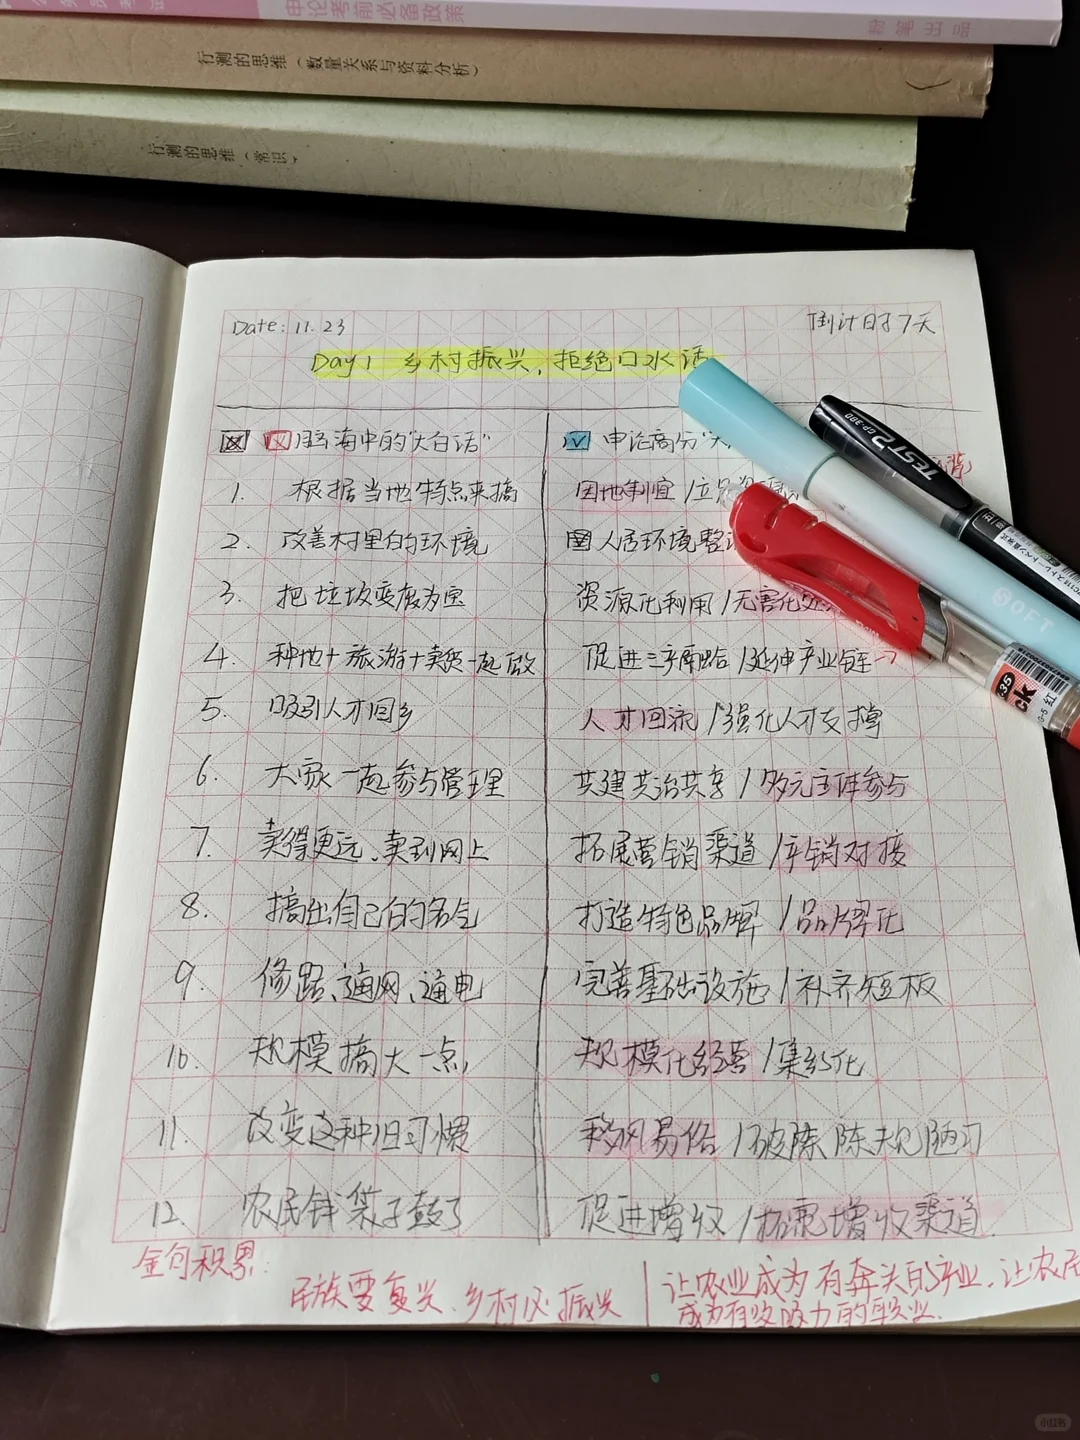 申论考前必备政策
粉笔出品
行测的思维（数量关系与资料分析）
行测的思维（常识
Date: 11.23
倒计时7天
Day1 乡村振兴，拒绝口水话
脑海中的"大白话"
申论高分"
1. 根据当地特点来搞
因地制宜 /立足资源
2. 改善村里的环境
人居环境整治
3. 把垃圾变废为宝
资源化利用 /无害化处
4. 种地+旅游+卖货一起做
促进三产融合 /延伸产业链
5. 吸引人才回乡
人才回流 /强化人才支撑
6. 大家一起参与管理
共建共治共享 /多元主体参与
7. 卖得更远、卖到网上
拓展营销渠道 /产销对接
8. 搞出自己的名气
打造特色品牌 /品牌化
9. 修路、通网、通电
完善基础设施 /补齐短板
10. 规模搞大一点
规模化经营 /集约化
11. 改变这种旧习惯
移风易俗 /破除陈规陋习
12. 农民钱袋子鼓了
促进增收 /拓宽增收渠道.
金句积累:
民族要复兴、乡村必振兴
让农业成为有奔头的产业、让农民
成为有吸引力的职业.
TEST2 GP-380
SOFT
小红书